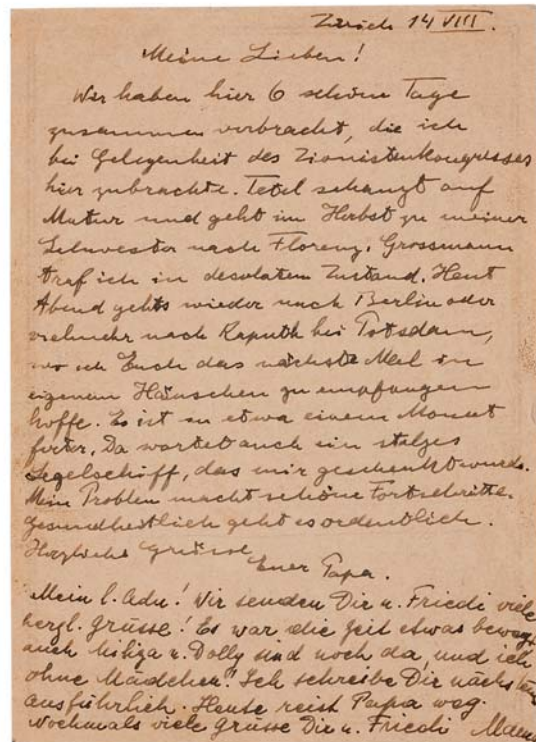 Zürich 14 VIII.
Meine Lieben!
Wir haben hier 6 schöne Tage
zusammen verbracht, die ich
bei Gelegenheit des Zionistenkongresses
hier zubrachte. Tetel schanzt auf
Matur und geht im Herbst zu meiner
Schwester nach Florenz. Grossmann
traf ich in desolatem Zustand. Heut
Abend gehts wieder nach Berlin oder
vielmehr nach Kaputh bei Potsdam,
wo ich Euch das nächste Mal im
eigenen Häuschen zu empfangen
hoffe. Es ist in etwa einem Monat
fertig. Da wartet auch ein stolzes
Segelschiff, das mir geschenkt wurde.
Mein Problem macht schöne Fortschritte.
Gesundheitlich geht es ordentlich.
Herzliche Grüsse
Euer Papa.
Mein l. Adn! Wir senden Dir u. Friedi viele
herzl. Grüsse! Es war die Zeit etwas bewegt
auch Miliza u. Dolly sind noch da, und ich
ohne Mädchen! Ich schreibe Dir nächstens
ausführlich. Heute reist Papa weg.
Nochmals viele Grüsse Dir u. Friedi Mama